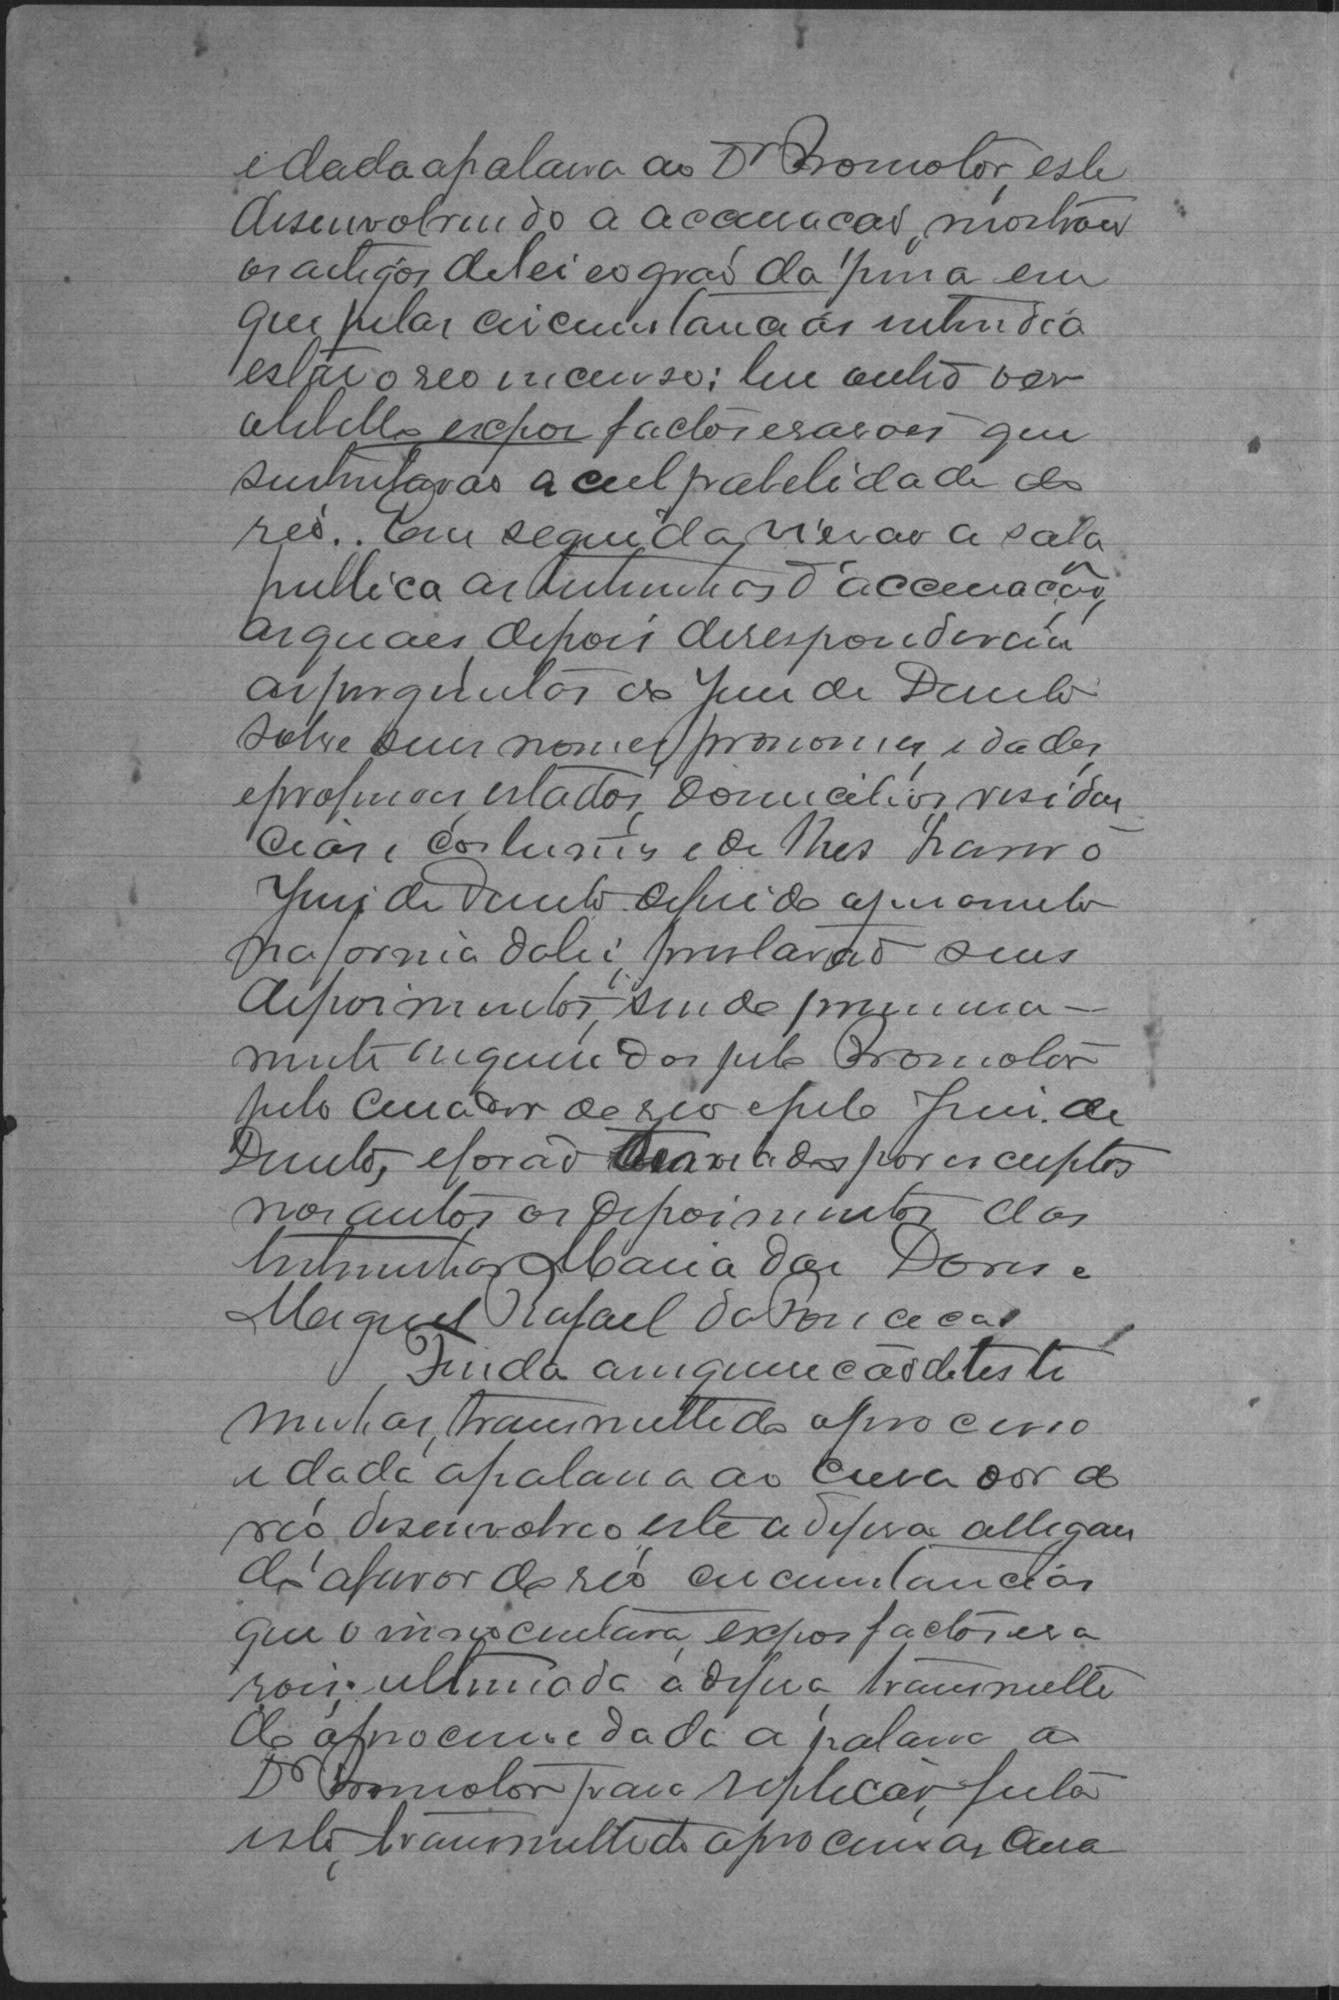 e dada a palavra ao Dr Promotor, este
desenvolvendo a accusacaó, mostrou
os artigos de lei e o graó da pena em
que pelas circumstancias entendia
estár o reo incurso; leu outró ver
o libello expor factos e rasoes que
sustentavaó a culpabelidade do
reó.. Em seguida, vieraó a sala
publica as testimunhas d'accusação,
as quaes, depois de responderem
as perguntas do Juiz de Direito
sobre seus nomes, pronomes, idades,
e profissoes, estados, domicilios, residen
cias e costumes e de lhes haver o
Juiz de Direito deferido ajuramento
na forma da lei, prestaraó seus
depoimentos, sendo primeira-
mente inquiridos pelo Promotor
pelo Curador do reo e pelo Juiz de
Direito, e foraó tomados por escriptos
nos autos os depoimentos das
testimunhas Maria das Dores e
Miguel Rafael da Conceicaó
Finda a inquericão de teste
munhas, transmettido o processo
e dada a palavra ao Curador do
reó, desenvolveo este a defesa allegan
do a favor do reó circumstancias
que o innocentava, expos factos e ra
sois; ultimada a defesa, transmetti
do o processo e dada a palavra ao
Dr Promotor para replicar, feita
esta, transmettido o processo ao Cura